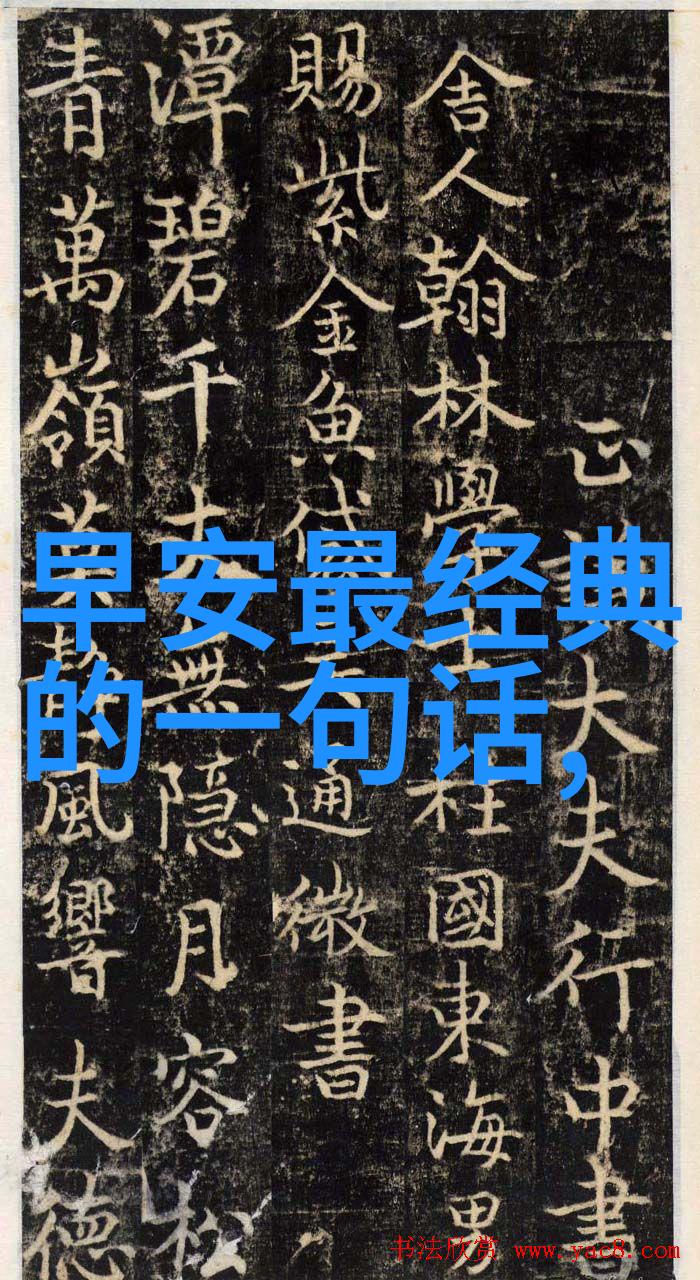 早安最经典
的一句话,
正大夫行中書
舍人翰林學柱國東海男
賜紫金魚通微書
潭碧千無隐月容松
青萬嶺風響夫德
书法欣赏 www.yac8.com